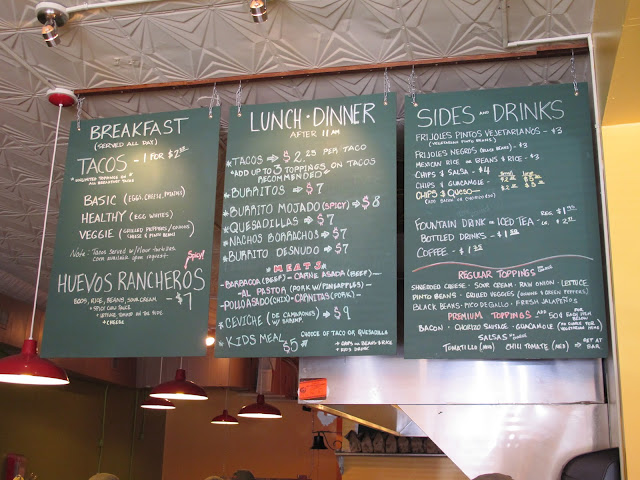 BREAKFAST
(SERVED ALL DAY)
TACOS - 1 FOR $2
*UNLIMITED TOPPINGS ON
ALL BREAKFAST TACOS
BASIC (EGGS, CHEESE, PINTOS)
HEALTHY (EGG WHITES)
VEGGIE (GRILLED PEPPERS/ONIONS
CHEESE & PINTO BEANS)
Note: Tacos served w/flour tortillas.
Corn available upon request.
Spicy!
HUEVOS RANCHEROS
EGGS, RICE, BEANS, SOUR CREAM - $7
+ SPICY
+ LETTUCE, TOMATO ON THE SIDE
+ CHEESE
LUNCH · DINNER
AFTER 11 AM
*TACOS → $2.25 PER TACO
*ADD UP TO 3 TOPPINGS ON TACOS
RECOMMENDED*
*BURRITOS → $7
*BURRITO MOJADO (SPICY) → $8
*QUESADILLAS → $7
*NACHOS BORRACHOS → $7
*BURRITO DESNUDO → $7
*MEATS*
-BARBACOA (BEEF) - CARNE ASADA (BEEF) -
- AL PASTOR (PORK W/PINEAPPLES) -
- POLLO ASADO (CHIX) - CARNITAS (PORK) -
*CEVICHE (DE CAMARONES) → $9
W/ SHRIMP
*KIDS MEAL $5
CHOICE OF TACO OR QUESADILLA
+ CHIPS OR BEANS & RICE
+ KID'S DRINK
SIDES AND DRINKS
FRIJOLES PINTOS VEJETARIANOS - $3
(VEGETARIAN PINTO BEANS)
FRIJOLES NEGROS (BLACK BEANS) - $3
MEXICAN RICE OR BEANS & RICE - $3
CHIPS & SALSA - $4
CHIPS & GUACAMOLE -
CHIPS & QUESO -
(ADD BACON OR CHORIZO)
FOUNTAIN DRINK OR ICED TEA - REG. $1.95
LG. $2.
BOTTLED DRINKS - $1
COFFEE - $1
REGULAR TOPPINGS
SHREDDED CHEESE · SOUR CREAM · RAW ONION · LETTUCE
PINTO BEANS · GRILLED VEGGIES (ONIONS & GREEN PEPPERS)
BLACK BEANS · PICO DE GALLO · FRESH JALAPEÑOS
PREMIUM TOPPINGS ADD 50¢ EACH ITEM BELOW
BACON · CHORIZO SAUSAGE · GUACAMOLE
SALSAS
TOMATILLO CHILI TOMATE (RED) GET AT BAR